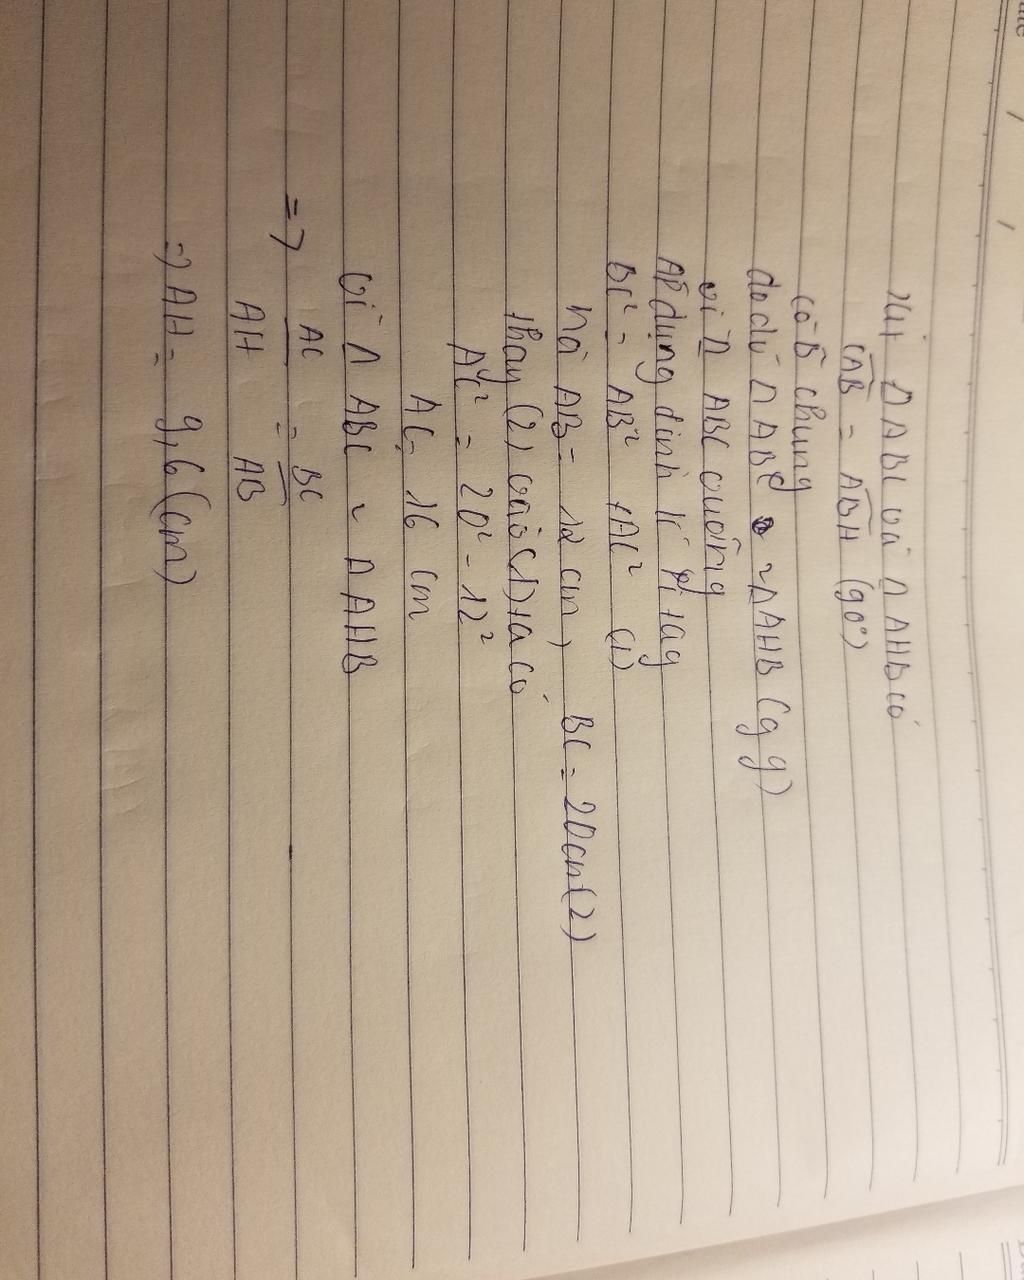 Xét Δ ABC và Δ AHB có
CAB = ABH (90°)
có B chung
do đó Δ ABC ~ ΔAHB (g g)
vì Δ ABC vuông
Áp dụng định lí Pi tag
BC² = AB² + AC² (1)
mà AB = 12 cm, BC = 20cm (2)
thay (2) vào (1) ta có
AC² = 20² - 12²
AC = 16 cm
Vì Δ ABC ~ Δ AHB
=> AC/AH = BC/AB
=> AH = 9,6 (cm)